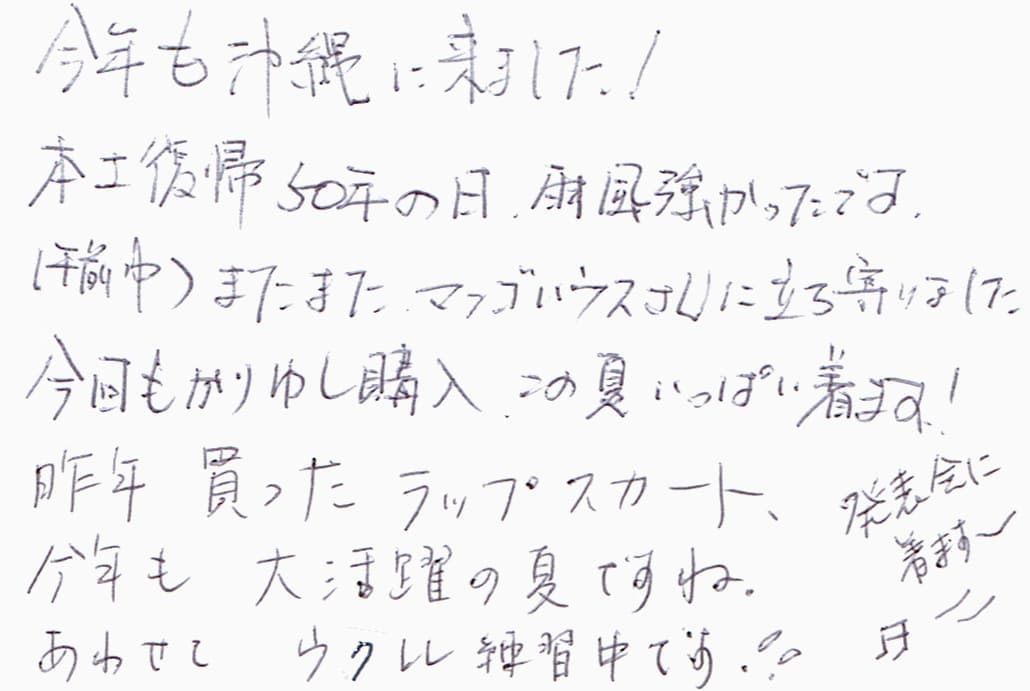 今年も沖縄に来ました!
本土復帰50年の日、雨風強かったです。
(午前中)またまた、マンゴハウスさんに立ち寄りました
今回もかりゆし購入、この夏いっぱい着ます!
昨年 買った ラップスカート、
今年も 大活躍の夏ですね。
あわせて ウクレレ練習中です。
発表会に
着ます〜